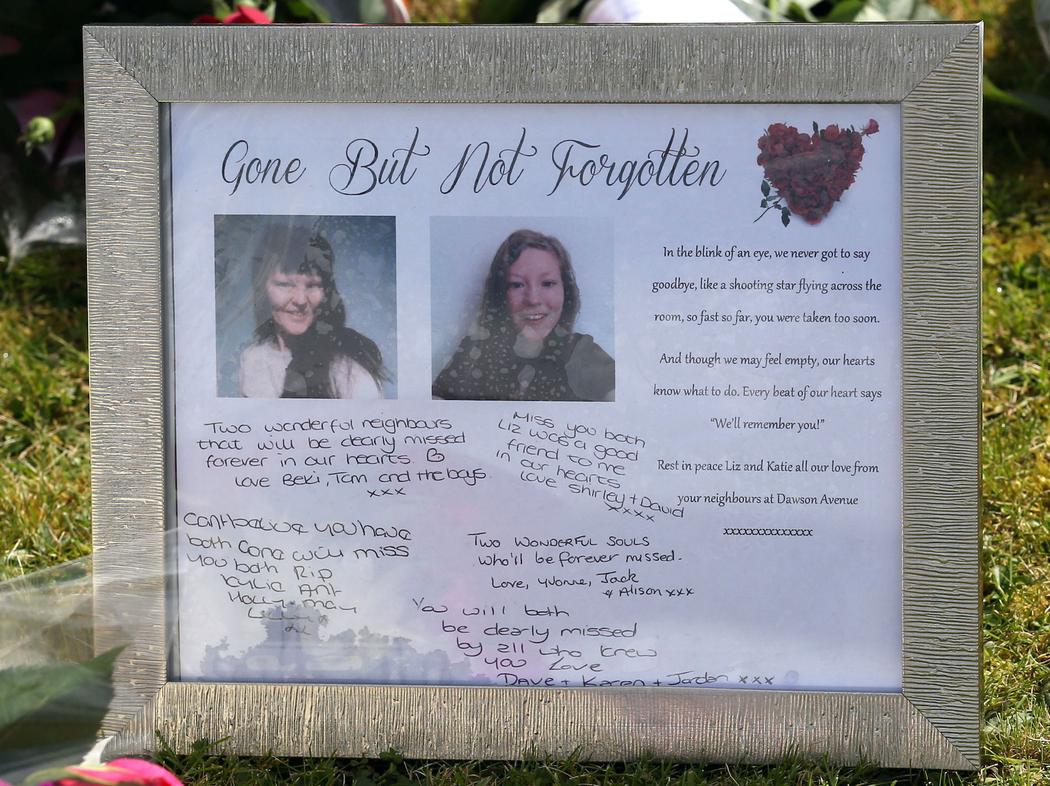 Gone But Not Forgotten
In the blink of an eye, we never got to say
goodbye, like a shooting star flying across the
room, so fast so far, you were taken too soon.
And though we may feel empty, our hearts
know what to do. Every beat of our heart says
"We'll remember you!"
Rest in peace Liz and Katie all our love from
your neighbours at Dawson Avenue
xxxxxxxxxxxxxxx
Two wonderful neighbours
that will be dearly missed
forever in our hearts.
Love Beki, Tom and the boys.
xxx
Miss you both
Liz was a good
friend to me
in our hearts
love Shirley + David
xxxx
you have
both gone will miss
you both Rip
Kylie Ant
Holly-may
Two wonderful souls
who'll be forever missed.
Love, Yvonne, Jack
& Alison xxx
You will both
be dearly missed
by all who knew
you Love
Dave + Karen + Jordan xxx